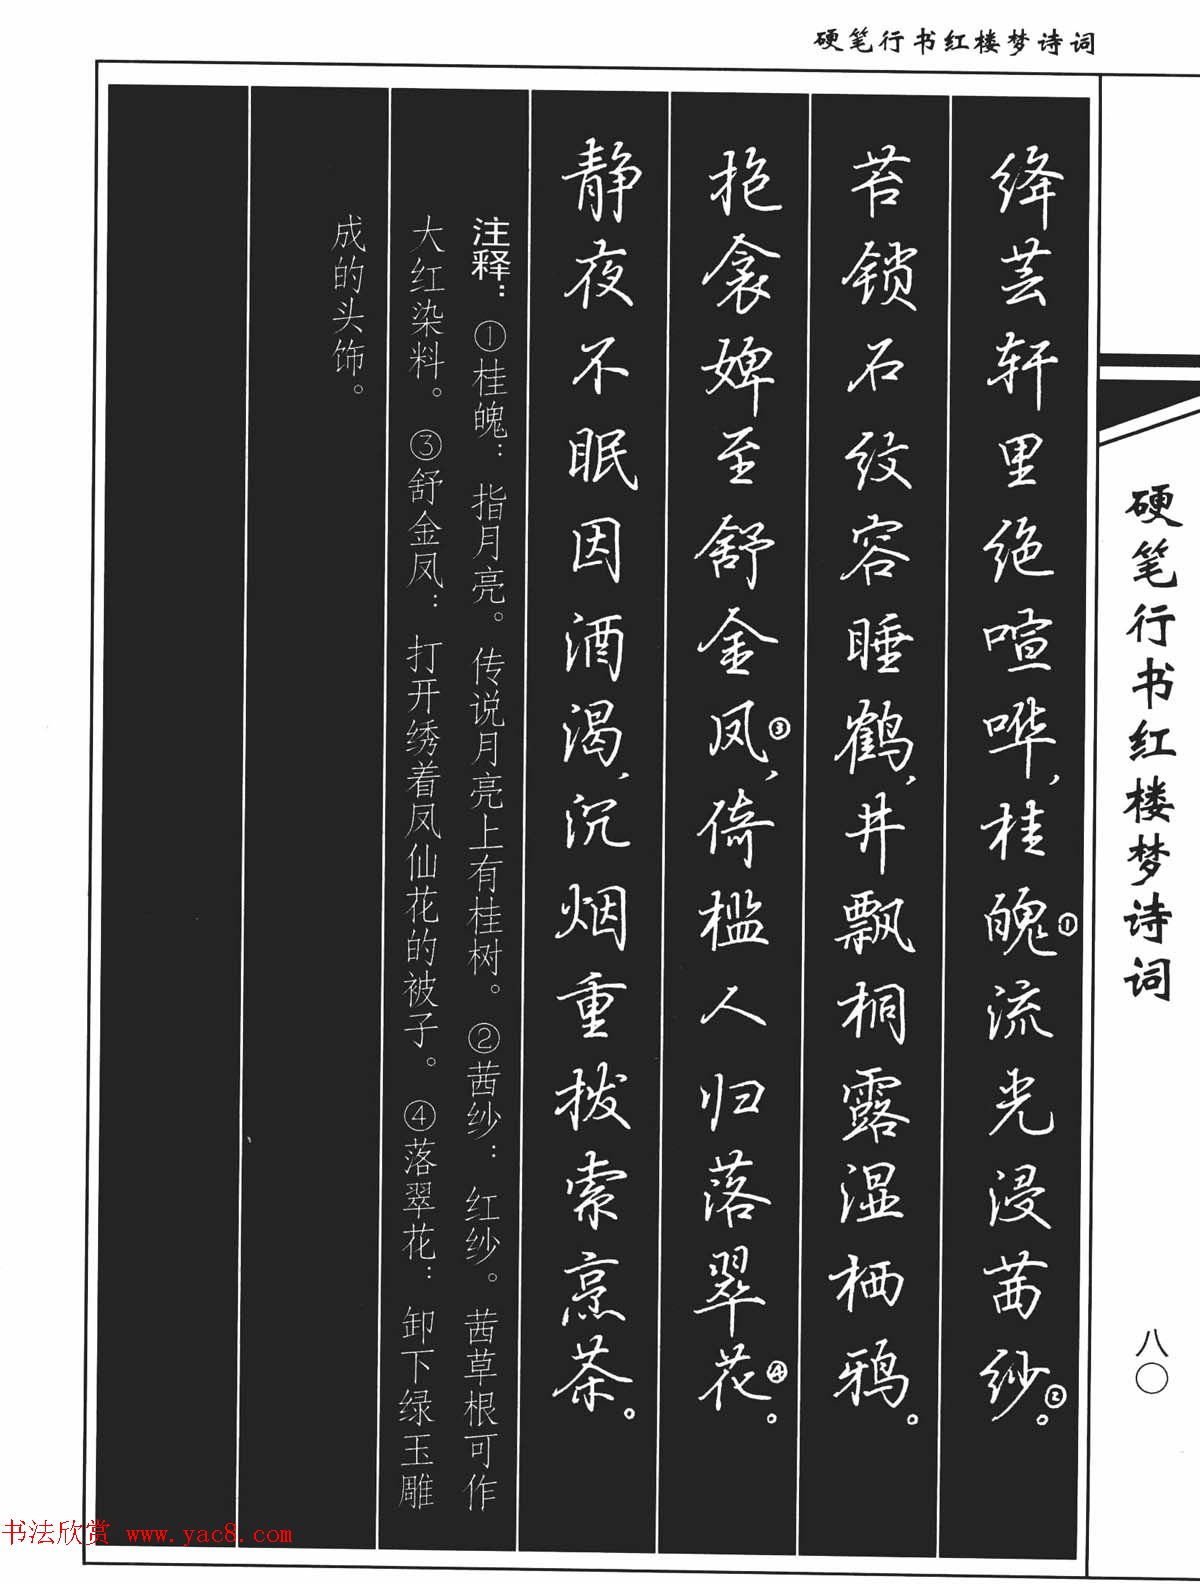 硬笔行书红楼梦诗词
绛芸轩里绝喧哗，桂魄①流光浸茜纱②。
苔锁石纹容睡鹤，井飘桐露湿栖鸦。
抱衾婢至舒金凤③，倚槛人归落翠花④。
静夜不眠因酒渴，沉烟重拨索烹茶。
注释：①桂魄：指月亮。传说月亮上有桂树。②茜纱：红纱。茜草根可作
大红染料。③舒金凤：打开绣着凤仙花的被子。④落翠花：卸下绿玉雕
成的头饰。
硬笔行书红楼梦诗词
八〇
书法欣赏 www.yac8.com